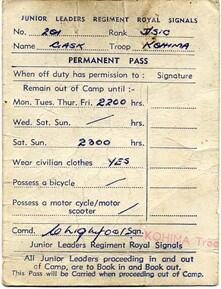 JUNIOR LEADERS REGIMENT ROYAL SIGNALS
No. 201 Rank J/SIG
Name CLASK Troop KOHIMA
PERMANENT PASS
When off duty has permission to : Signature
Remain out of Camp until :-
Mon. Tues. Thur. Fri. 2200 hrs.
Wed. Sat. Sun. / hrs.
Sat. Sun. 2300 hrs.
Wear civilian clothes YES
Possess a bicycle /
Possess a motor cycle/motor
scooter /
Comd. Sqn.
KOHIMA Troo
Junior Leaders Regiment Royal Signals
All Junior Leaders proceeding in and out
of Camp, are to Book in and Book out.
This Pass will be Carried when proceeding out of Camp.